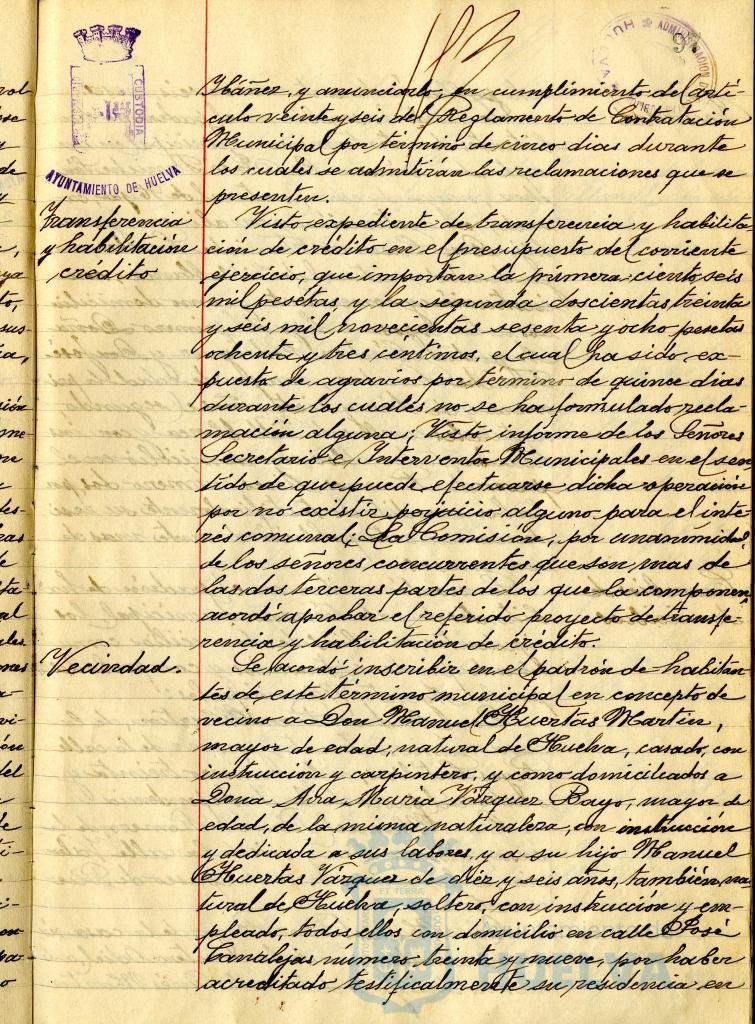 97
CUSTODIA
AYUNTAMIENTO DE HUELVA
HUELVA
Ibáñez, y anunciarlo, en cumplimiento del artí-
culo veinte y seis del Reglamento de Contratación
Municipal por término de cinco dias durante
los cuales se admitirán las reclamaciones que se
presenten.
Transferencia
y habilitación
crédito
Visto expediente de transferencia y habilita-
ción de crédito en el presupuesto del corriente
ejercicio, que importan la primera ciento seis
mil pesetas y la segunda doscientas treinta
y seis mil novecientas sesenta y ocho pesetas
ochenta y tres céntimos, el cual ha sido ex-
puesto de agravios por término de quince dias
durante los cuales no se ha formulado recla-
mación alguna; Visto informe de los Señores
Secretario e Interventor Municipales en el sen
tido de que puede efectuarse dicha operación
por no existir perjuicio alguno para el inte-
rés comunal; La Comisión, por unanimidad
de los señores concurrentes que son mas de
las dos terceras partes de los que la componen,
acordó aprobar el referido proyecto de transfe-
rencia y habilitación de crédito.
Vecindad.
Se acordó inscribir en el padrón de habitan-
tes de este término municipal en concepto de
vecino a Don Manuel Huertas Martin,
mayor de edad, natural de Huelva, casado, con
instrucción y carpintero, y como domiciliados a
Dona Ana Maria Vázquez Bayo, mayor de
edad, de la misma naturaleza, con instrucción
y dedicada a sus labores, y a su hijo Manuel
Huertas Vázquez de diez y seis años, también na
tural de Huelva, soltero, con instrucción y em-
pleado, todos ellos con domicilio en calle José
Canalejas número treinta y nueve, por haber
acreditado testificalmente su residencia en
HUELVA